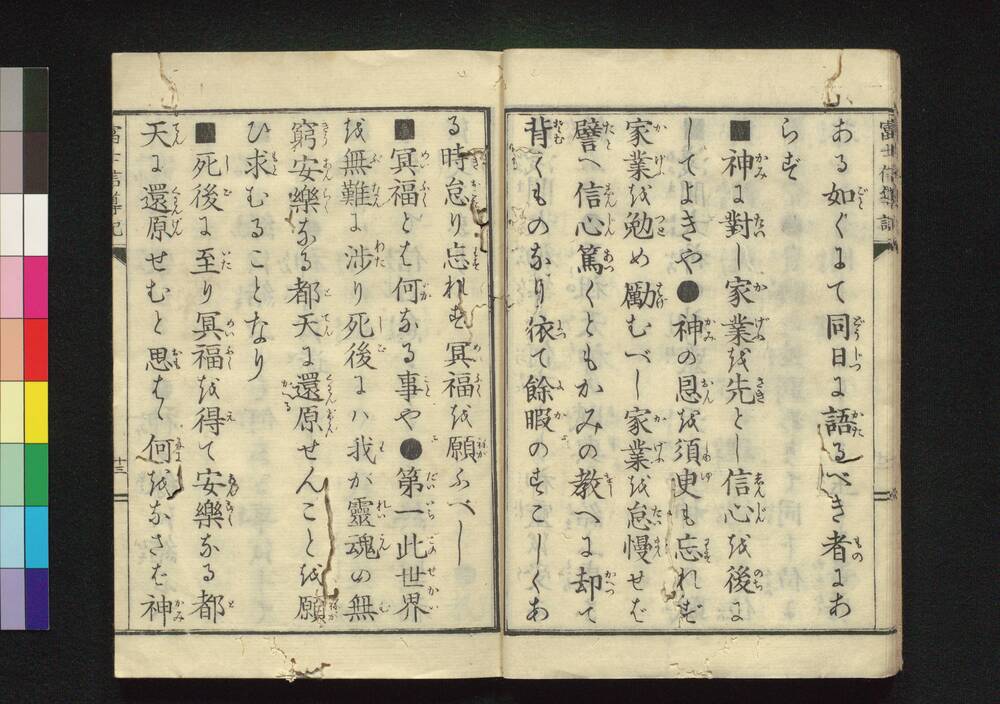 ある如くにて同日に語るべき者にあ
らず
■神に對し家業を先とし信心を後に
してよきや●神の恩を須臾も忘れず
家業を勉め勵むべし家業を怠慢せば
譬へ信心篤くともかみの教へに却て
背くものなり依て餘暇のすこしくあ
る時怠り忘れず冥福を願ふべし
■冥福とは何なる事や●第一此世界
を無難に渉り死後にハ我が靈魂の無
窮安樂なる都天に還原せんことを願
ひ求むることなり
■死後に至り冥福を得て安樂なる都
天に還原せむと思はゞ何をなさば神
十三